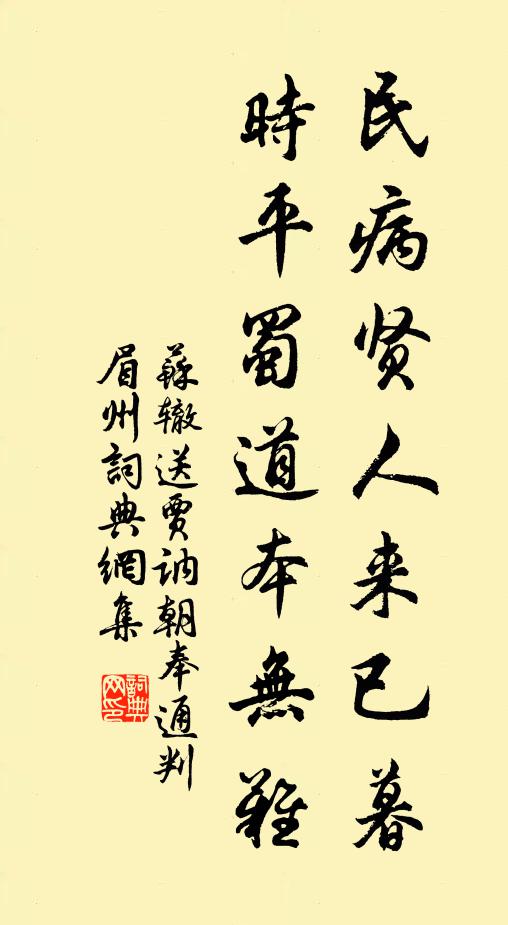 民病贤人来已暮
時平蜀道本無難
蘇辙送贾讷朝奉通判
眉州詞典網集
詞典网印